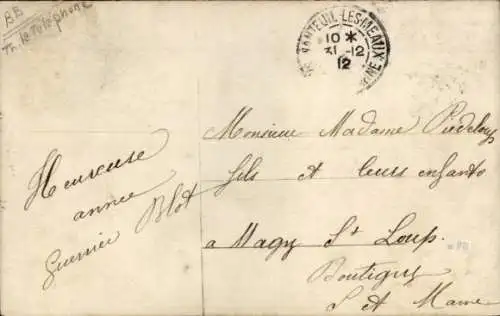 BB
Th. le Téléphone
NANTEUIL-LES-MEAUX
10 *
31 -12
12
Monsieur Madame Piedeloup
fils et leurs enfants
a Magy St Loup
Boutigny
S et Marne
Heureuse
année
Guerrier Blot